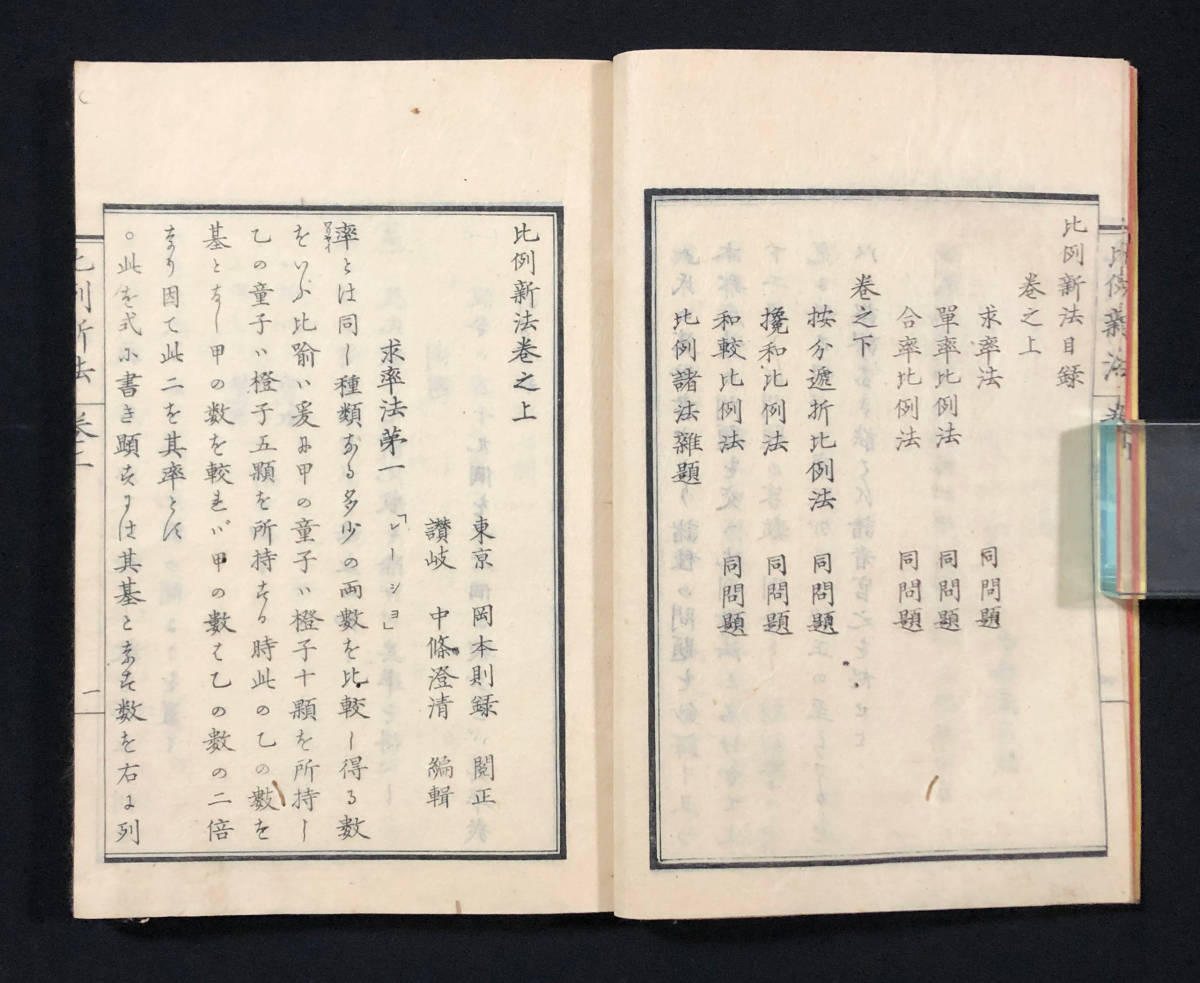 比例新法目録
巻之上
求率法 同問題
單率比例法 同問題
合率比例法 同問題
巻之下
按分遞折比例法 同問題
攙和比例法 同問題
和較比例法 同問題
比例諸法雜題
比例新法巻之上
東京 岡本則録 閲正
讃岐 中條澄清 編輯
求率法第一 「レーシヨ」
率とは同し種類なる多少の両數を比較し得る數
をいふ比喩ハ爰に甲の童子ハ橙子十顆を所持し
乙の童子ハ橙子五顆を所持する時此の乙の數を
基となし甲の數を較れバ甲の數ハ乙の數の二倍
なり因て此二を其率とす
○此を式に書き顕すには其基となす數を右に列
比例新法